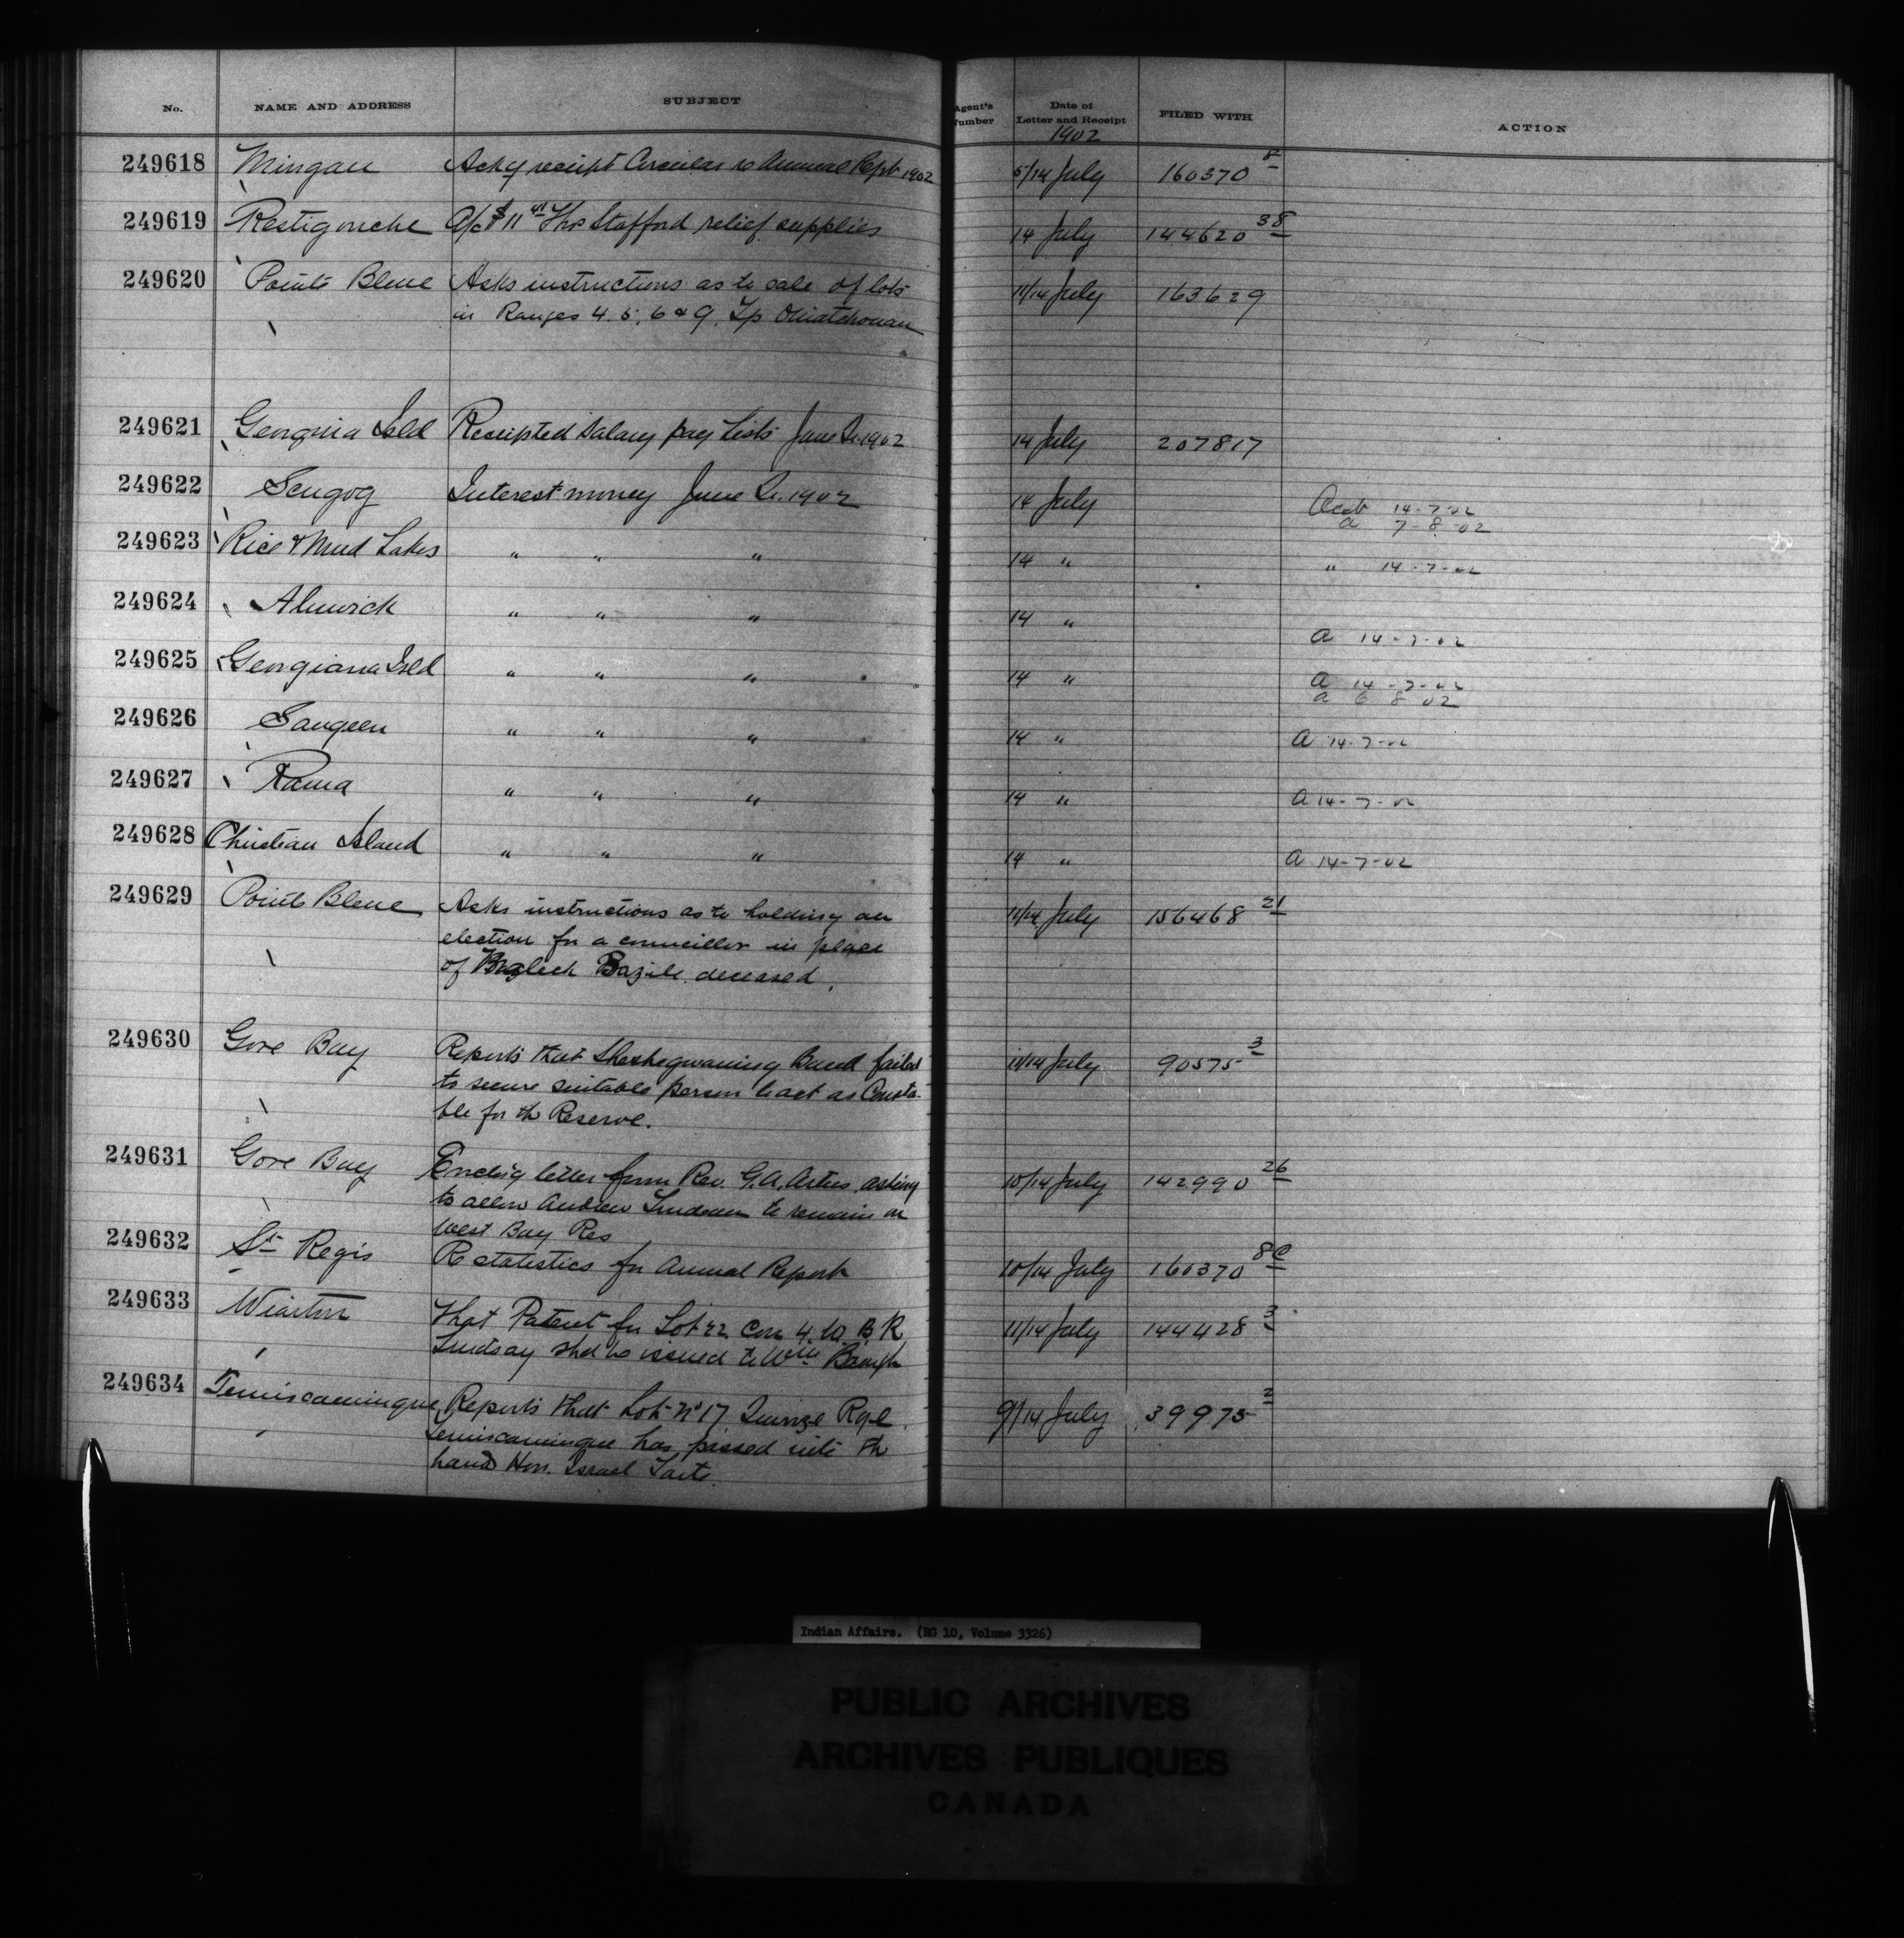 No. NAME AND ADDRESS SUBJECT Agent's Number Date of Letter and Receipt FILED WITH ACTION
1902
249618 Mingan Ackg receipt Circular re Annual Rept 1902 5/14 July 160370 8
249619 Restigouche a/c $11 41 Thos Stafford relief supplies 14 July 144620 38
249620 Pointe Bleue Asks instructions as to sale of lots 11/14 July 163629
in Ranges 4. 5. 6 & 9. Tp Ouiatchouan
249621 Georgina Isld Receipted Salary pay lists June Qr 1902 14 July 207817
249622 Scugog Interest money June Qr. 1902 14 July Acct 14-7-02
a 7-8-02
249623 Rice & Mud Lakes " " " 14 " " 14-7-02
249624 Alnwick " " " 14 " a 14-7-02
249625 Georgiana Isld " " " 14 " a 14-7-02
a 6 8 02
249626 Saugeen " " " 14 " a 14-7-02
249627 Rama " " " 14 " a 14-7-02
249628 Christian Island " " " 14 " a 14-7-02
249629 Pointe Bleue Asks instructions as to holding an 11/14 July 156468 21
election for a councillor in place
of Bazile deceased.
249630 Gore Bay Reports that Sheshegwaning Band failed 11/14 July 90575 3
to secure suitable person to act as Consta-
ble for th Reserve.
249631 Gore Bay Enclg letter from Rev. G.A. Artus asking 10/14 July 142990 26
to allow Andrew to remain on
West Bay Res
249632 St Regis Re statistics for Annual Report 10/14 July 160370 8c
249633 Wiarton That Patent for Lot 22 Con 4. W. B. R 11/14 July 144428 3
Lindsay shd be issued to Wm Baugh
249634 Temiscamingue Reports that Lot No 17 Quinze Rge 9/14 July 39975 2
Temiscamingue has passed into th
hand Hon. Israel Tarte.
Indian Affairs. (RG 10, Volume 3326)
PUBLIC ARCHIVES
ARCHIVES PUBLIQUES
CANADA